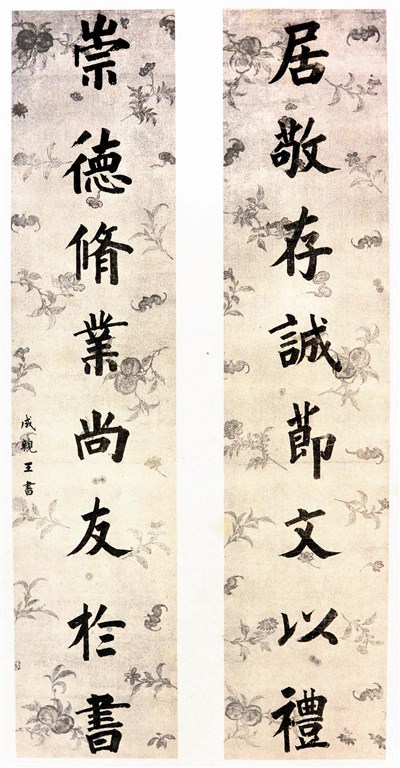 居敬存誠節文以禮
崇德脩業尚友於書
成親王書